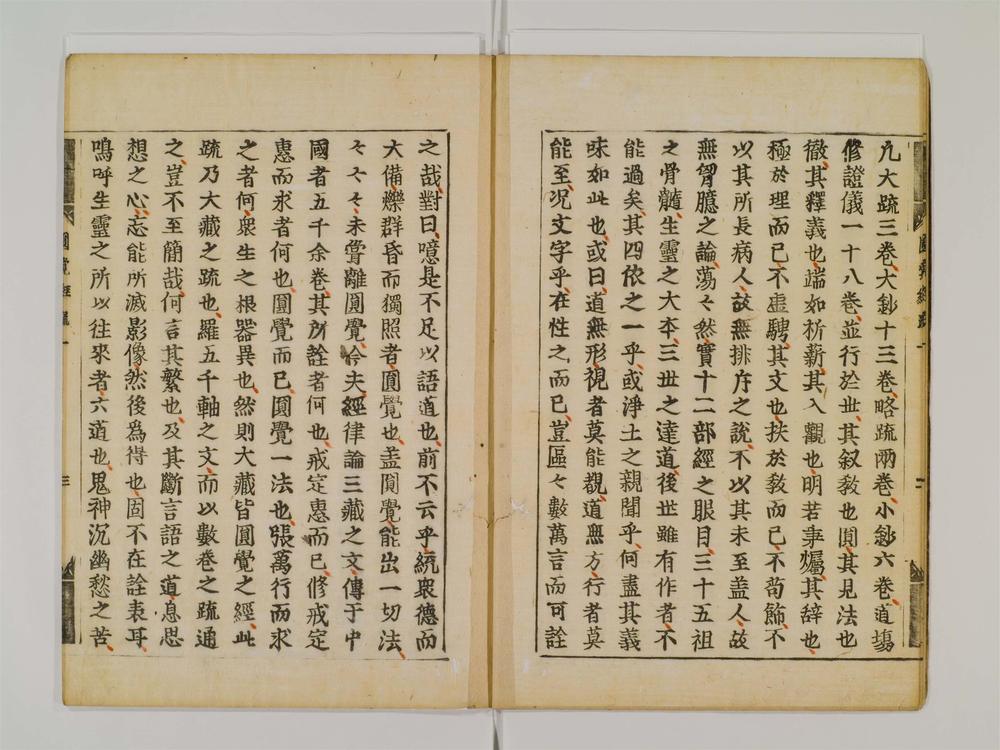 九大䟽三巻大鈔十三巻略䟽兩巻小鈔六巻道塲
修證儀一十八巻並行於丗其叙敎也圓其見法也
徹其釋義也端如析薪其入觀也明若秉燭其辞也
極於理而已不虛騁其文也扶於敎而已不苟飾不
以其所長病人故無排斥之說不以其未至盖人故
無胷臆之論蕩々然實十二部經之眼目三十五祖
之骨髓生靈之大本三丗之達道後丗雖有作者不
能過矣其四依之一乎或淨土之親聞乎何盡其義
味如此也或曰道無形視者莫能覩道無方行者莫
能至況文字乎在性之而已豈區々數萬言而可詮
之哉對曰噫是不足以語道也前不云乎統衆德而
大備爍群昏而獨照者圓覺也盖圓覺能出一切法
々々々未甞離圓覺今夫經律論三藏之文傳于中
國者五千余巻其所詮者何也戒定惠而已修戒定
惠而求者何也圓覺而已圓覺一法也張萬行而求
之者何衆生之根器異也然則大藏皆圓覺之經此
䟽乃大藏之䟽也羅五千軸之文而以數巻之䟽通
之豈不至簡哉何言其繁也及其斷言語之道息思
想之心忘能所滅影像然後爲得也固不在詮表耳
嗚呼生靈之所以往來者六道也鬼神沉幽愁之苦
圓覺經䟽一
三
圓覺經䟽一
二